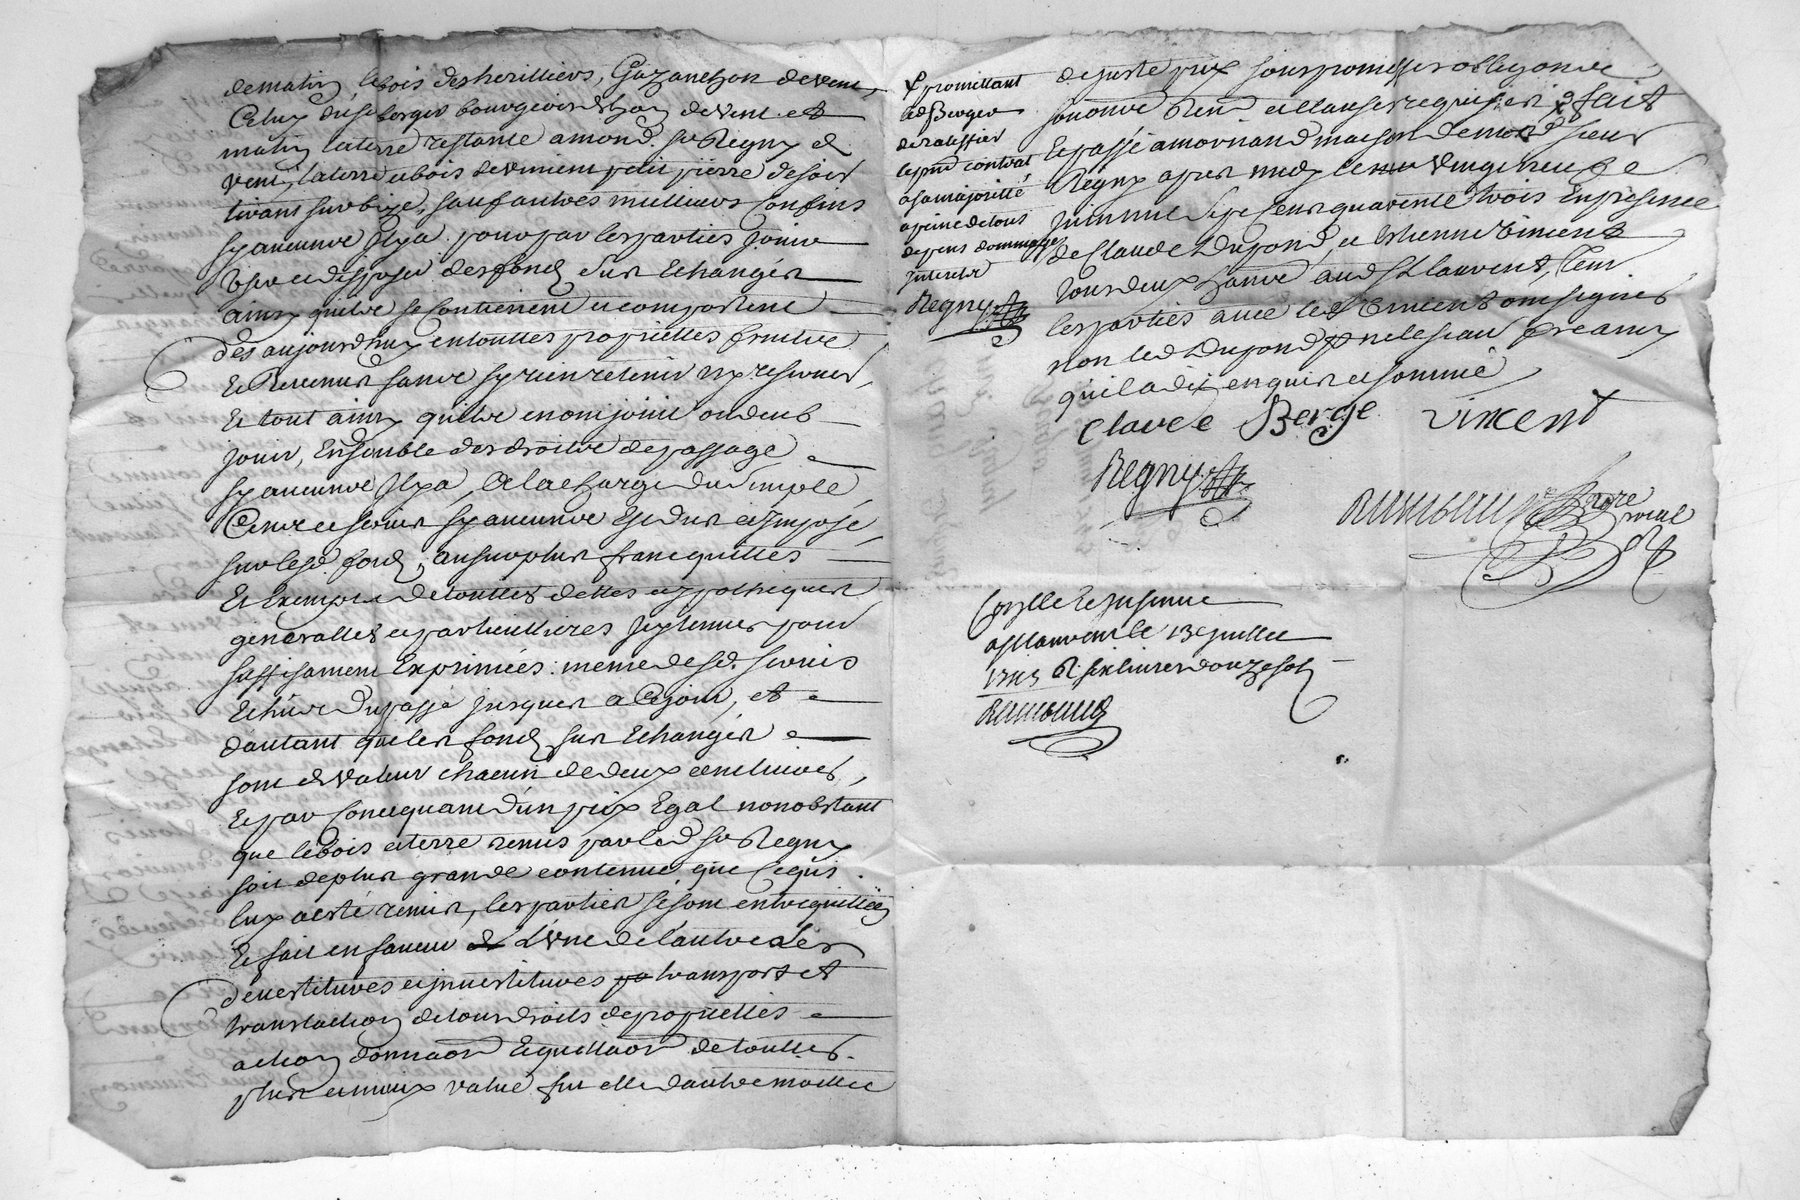 de matin, le bois des heritiers, Gazanchon de vent,
Celuy du sr berger bourgeois de Lyon de vent et
matin la terre restante a mond. sr Regny et
vent, la terre et bois de vincent petit pierre de soir
tirant sur bize, sauf autres meilleurs Confins
sy aucuns Il y a pour par les parties jouir
User et disposer des fonds sus Echangés
ainsy qu'ils se Contienent et comportent
des aujourdhuy en touttes proprietés fruits
Et Revenus sans sy rien retenir ny reserver,
Et tout ainsy qu'ils en ont joüi ou deub
jouir, Ensemble des droits de passage
sy aucuns Il y a, A la charge du simple
Cens et servis sy aucuns Est dus et Imposé
sur lesd. fonds, au surplus francs quittes
Et Exempts de touttes dettes et ypotheques
generalles et particullieres jcy tenus pour
suffisament Exprimées: meme desd. servis
Echus du passé jusques a Ce jour, et
d'autant que les fonds sus Echangés
sont de valeur chacun de deux cent livres,
Et par Consequant d'un prix Egal nonobstant
que le bois et terre remis par led. sr Regny
soit de plus grande contenue que Ce qui
luy a esté remis, les parties se sont entrequittées
Et fait en faveur de L'Une de l'autre Les
devestitures et jnvestitures pa transport et
translation de tous droits de proprietés
action donnaon Equittaon de touttes
plus et mieux value sur elle d'autre moittie
+ promittant
led Berger
de ratiffier
le pnt contrat
a sa majorité
a peine de tous
depens dommages
Interets
Regny
de juste prix sous promesses obligaon de
renonce &lt;...&gt; et clauses requises + fait
Et passé a mornand maison de mond. sieur
Regny apres midy le vingt neuf
juin mil sept Cent quarente trois En presence
de Claude Dupond, et Estienne Vincent
tous deux &lt;...&gt; aud. St laurent, tem.
les parties avec led. Vincent ont signés
non led. Dupond pr ne le scavoir &lt;...&gt;
qu'il a dit enquis et sommé
Claude Berge Vincent
Regny
Rambaud Nore Royal
Controllé Et Insinué
a St Laurent le 13e juillet
1743 R. six livres douze sols
Rambaud